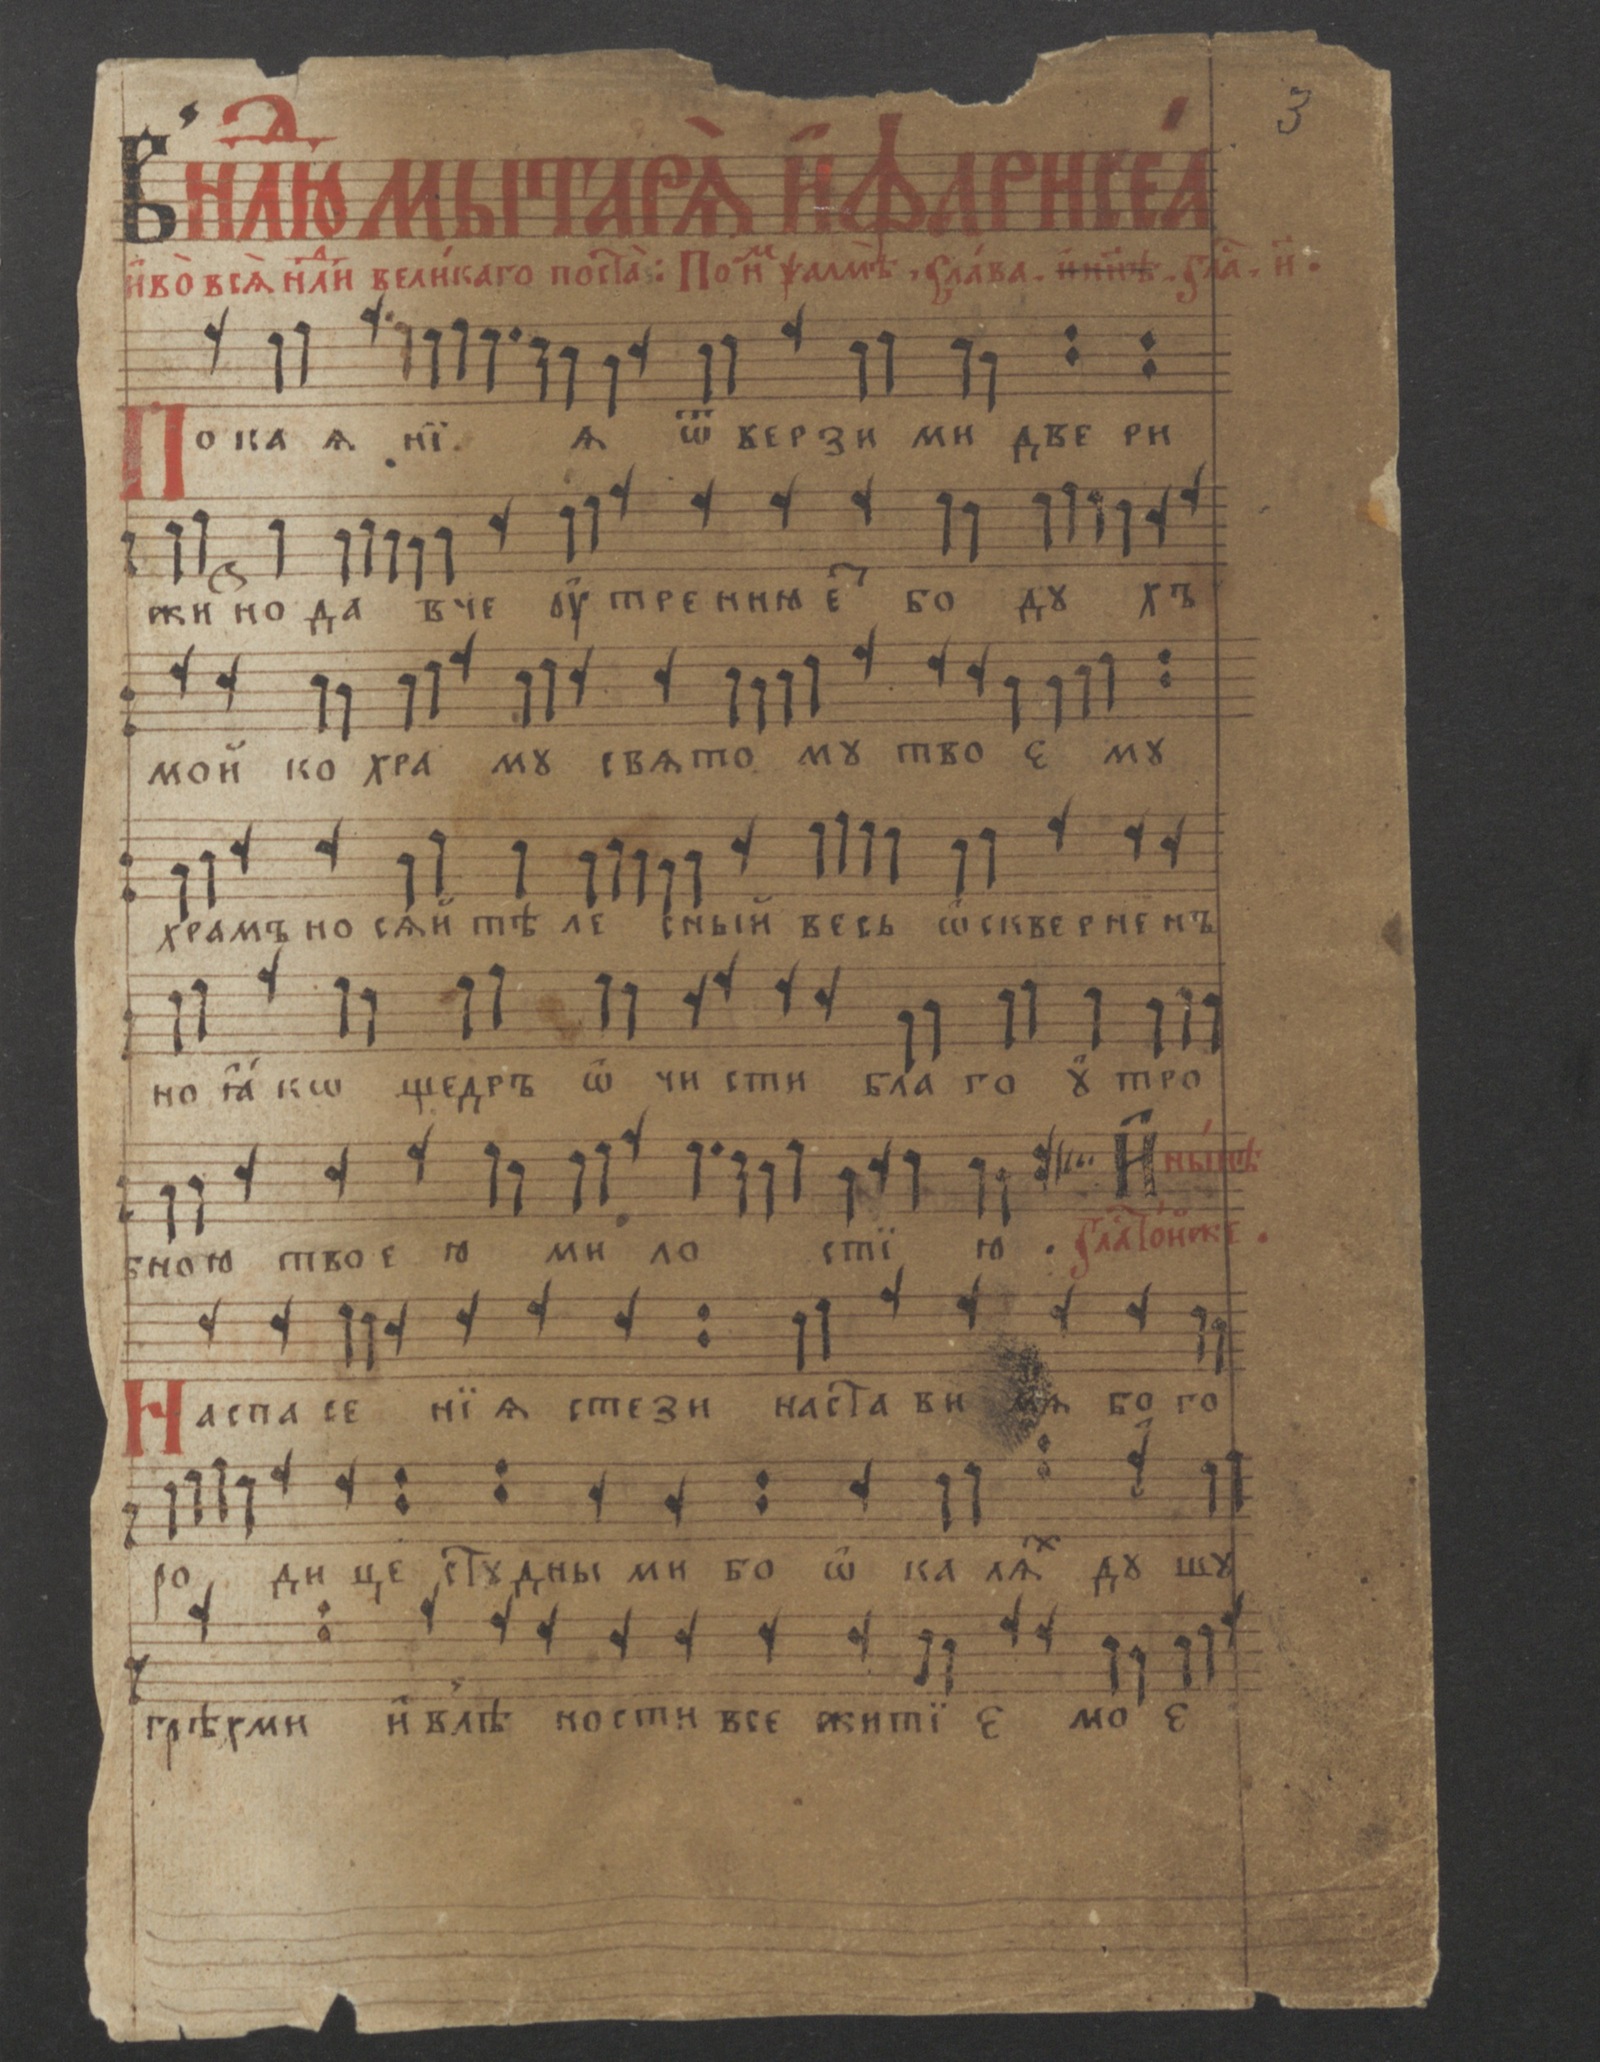 3
В нⷣлю мытарѧ̀ и҆ фарисе́а
и҆ во̀ всѧ̀ нⷣли вели́каго поста̀: По н҃ⷨ ѱалмѣ̀. сла́ва. и҆ нн҃ѣ. гла̑. и҃.
Покаѧнїѧ ѿверзи ми двери
жизнодавче оу҆тренюе҆тъ бо духъ
мой ко храму свѧтому твоєму
храмъ носѧ̀й тѣлесный весь ѡ҆скверненъ
но ꙗ҆́кѡ щедръ ѡ҆чисти благоꙋ҆тро
бною твоею милостїю. И҆ ны́нѣ
гла̑ то́йже.
На спасенїѧ стези настави мѧ бого
родице студными бо ѡ҆калѧⷯ душу
грѣхми и҆ в лѣности все житїє моє